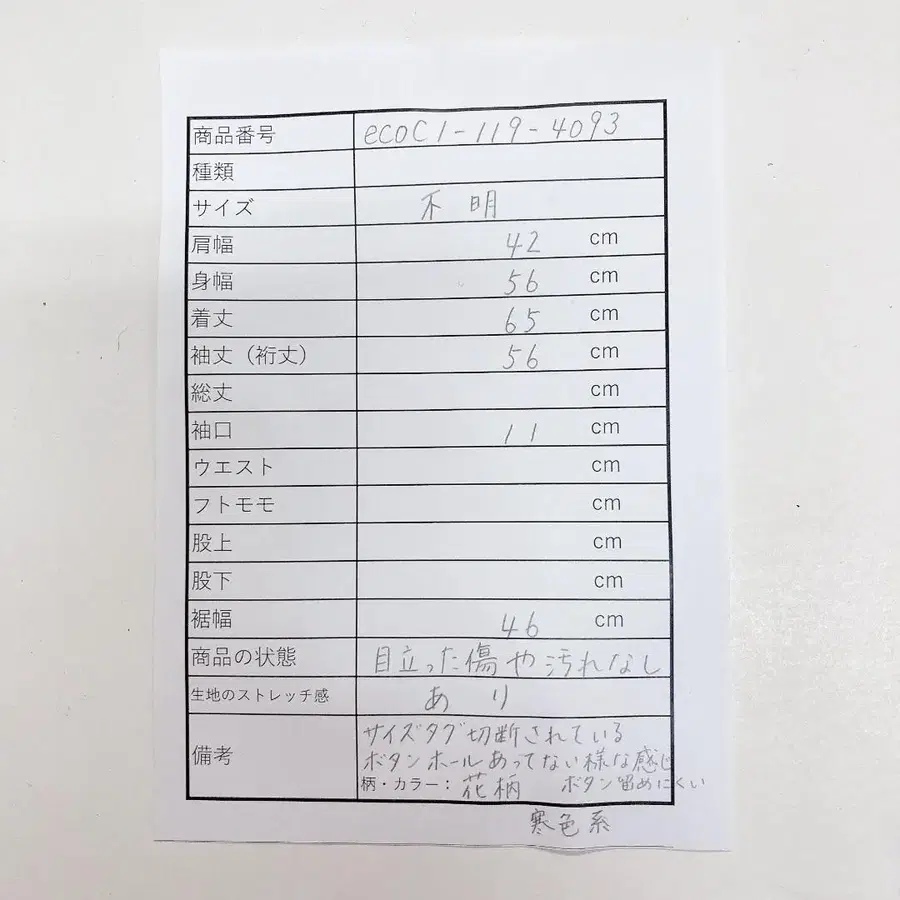 商品番号 ecoC1-119-4093
種類
サイズ 不明
肩幅 42 cm
身幅 56 cm
着丈 65 cm
袖丈（裄丈） 56 cm
総丈 cm
袖口 11 cm
ウエスト cm
フトモモ cm
股上 cm
股下 cm
裾幅 46 cm
商品の状態 目立った傷や汚れなし
生地のストレッチ感 あり
備考 サイズタグ切断されている
ボタンホールあってない様な感じ
柄・カラー： 花柄 ボタン留めにくい
寒色系